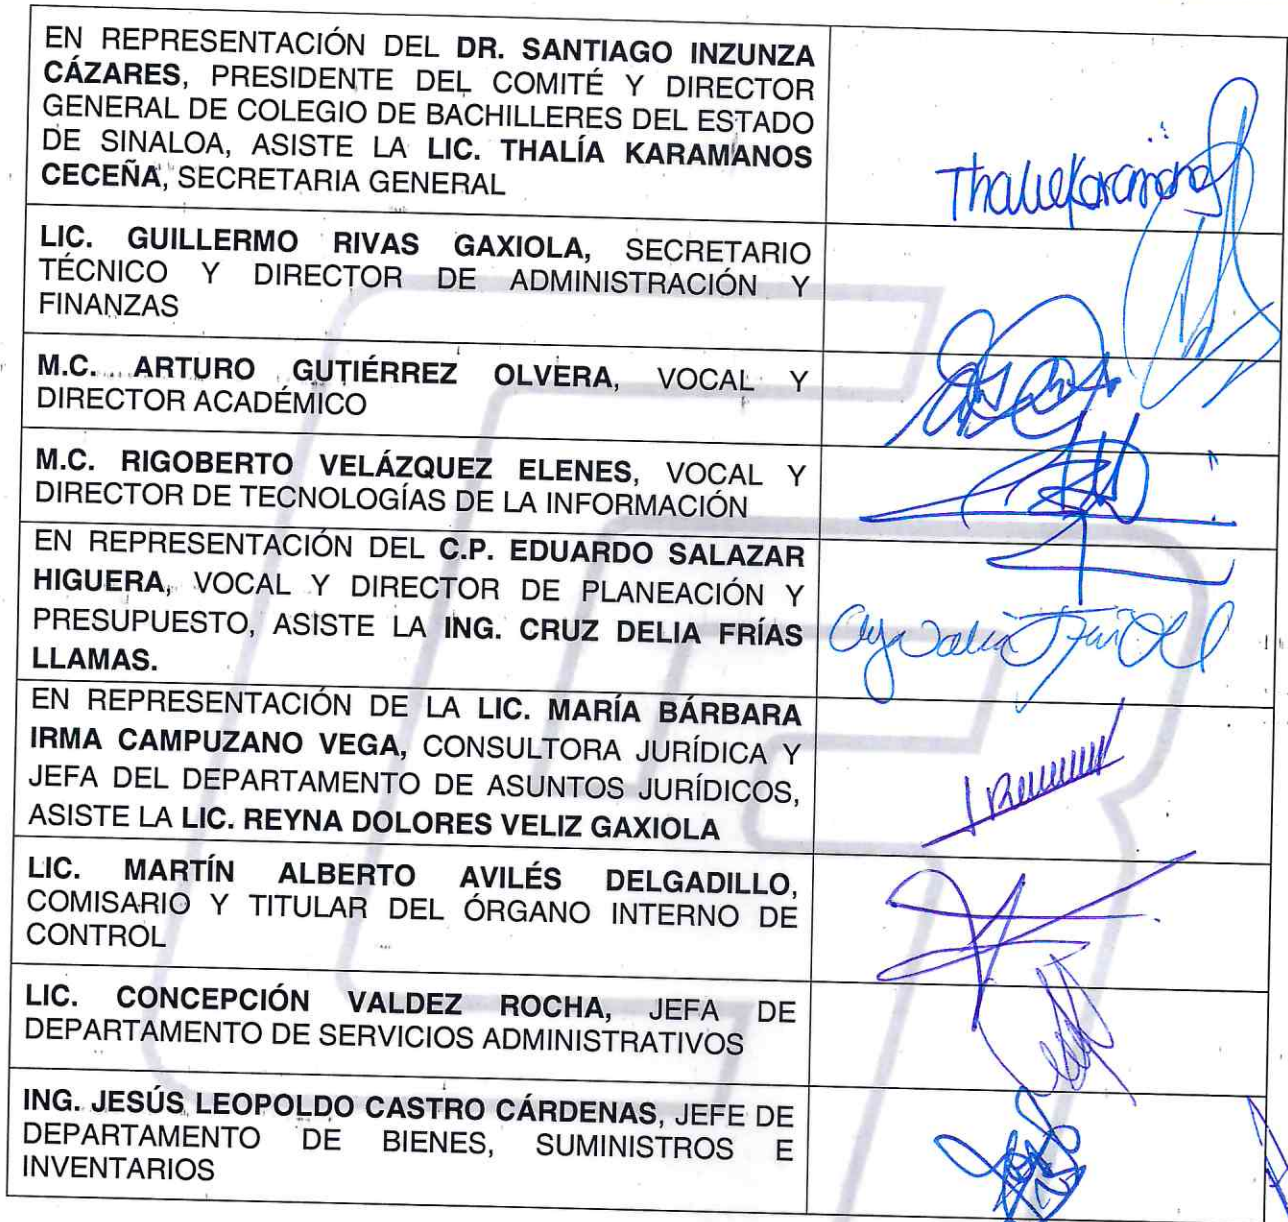 EN REPRESENTACIÓN DEL DR. SANTIAGO INZUNZA
CÁZARES, PRESIDENTE DEL COMITÉ Y DIRECTOR
GENERAL DE COLEGIO DE BACHILLERES DEL ESTADO
DE SINALOA, ASISTE LA LIC. THALÍA KARAMANOS
CECEÑA, SECRETARIA GENERAL
LIC. GUILLERMO RIVAS GAXIOLA, SECRETARIO
TÉCNICO Y DIRECTOR DE ADMINISTRACIÓN Y
FINANZAS
M.C. ARTURO GUTIÉRREZ OLVERA, VOCAL Y
DIRECTOR ACADÉMICO
M.C. RIGOBERTO VELÁZQUEZ ELENES, VOCAL Y
DIRECTOR DE TECNOLOGÍAS DE LA INFORMACIÓN
EN REPRESENTACIÓN DEL C.P. EDUARDO SALAZAR
HIGUERA, VOCAL Y DIRECTOR DE PLANEACIÓN Y
PRESUPUESTO, ASISTE LA ING. CRUZ DELIA FRÍAS
LLAMAS.
EN REPRESENTACIÓN DE LA LIC. MARÍA BÁRBARA
IRMA CAMPUZANO VEGA, CONSULTORA JURÍDICA Y
JEFA DEL DEPARTAMENTO DE ASUNTOS JURÍDICOS,
ASISTE LA LIC. REYNA DOLORES VELIZ GAXIOLA
LIC. MARTÍN ALBERTO AVILÉS DELGADILLO,
COMISARIO Y TITULAR DEL ÓRGANO INTERNO DE
CONTROL
LIC. CONCEPCIÓN VALDEZ ROCHA, JEFA DE
DEPARTAMENTO DE SERVICIOS ADMINISTRATIVOS
ING. JESÚS LEOPOLDO CASTRO CÁRDENAS, JEFE DE
DEPARTAMENTO DE BIENES, SUMINISTROS E
INVENTARIOS